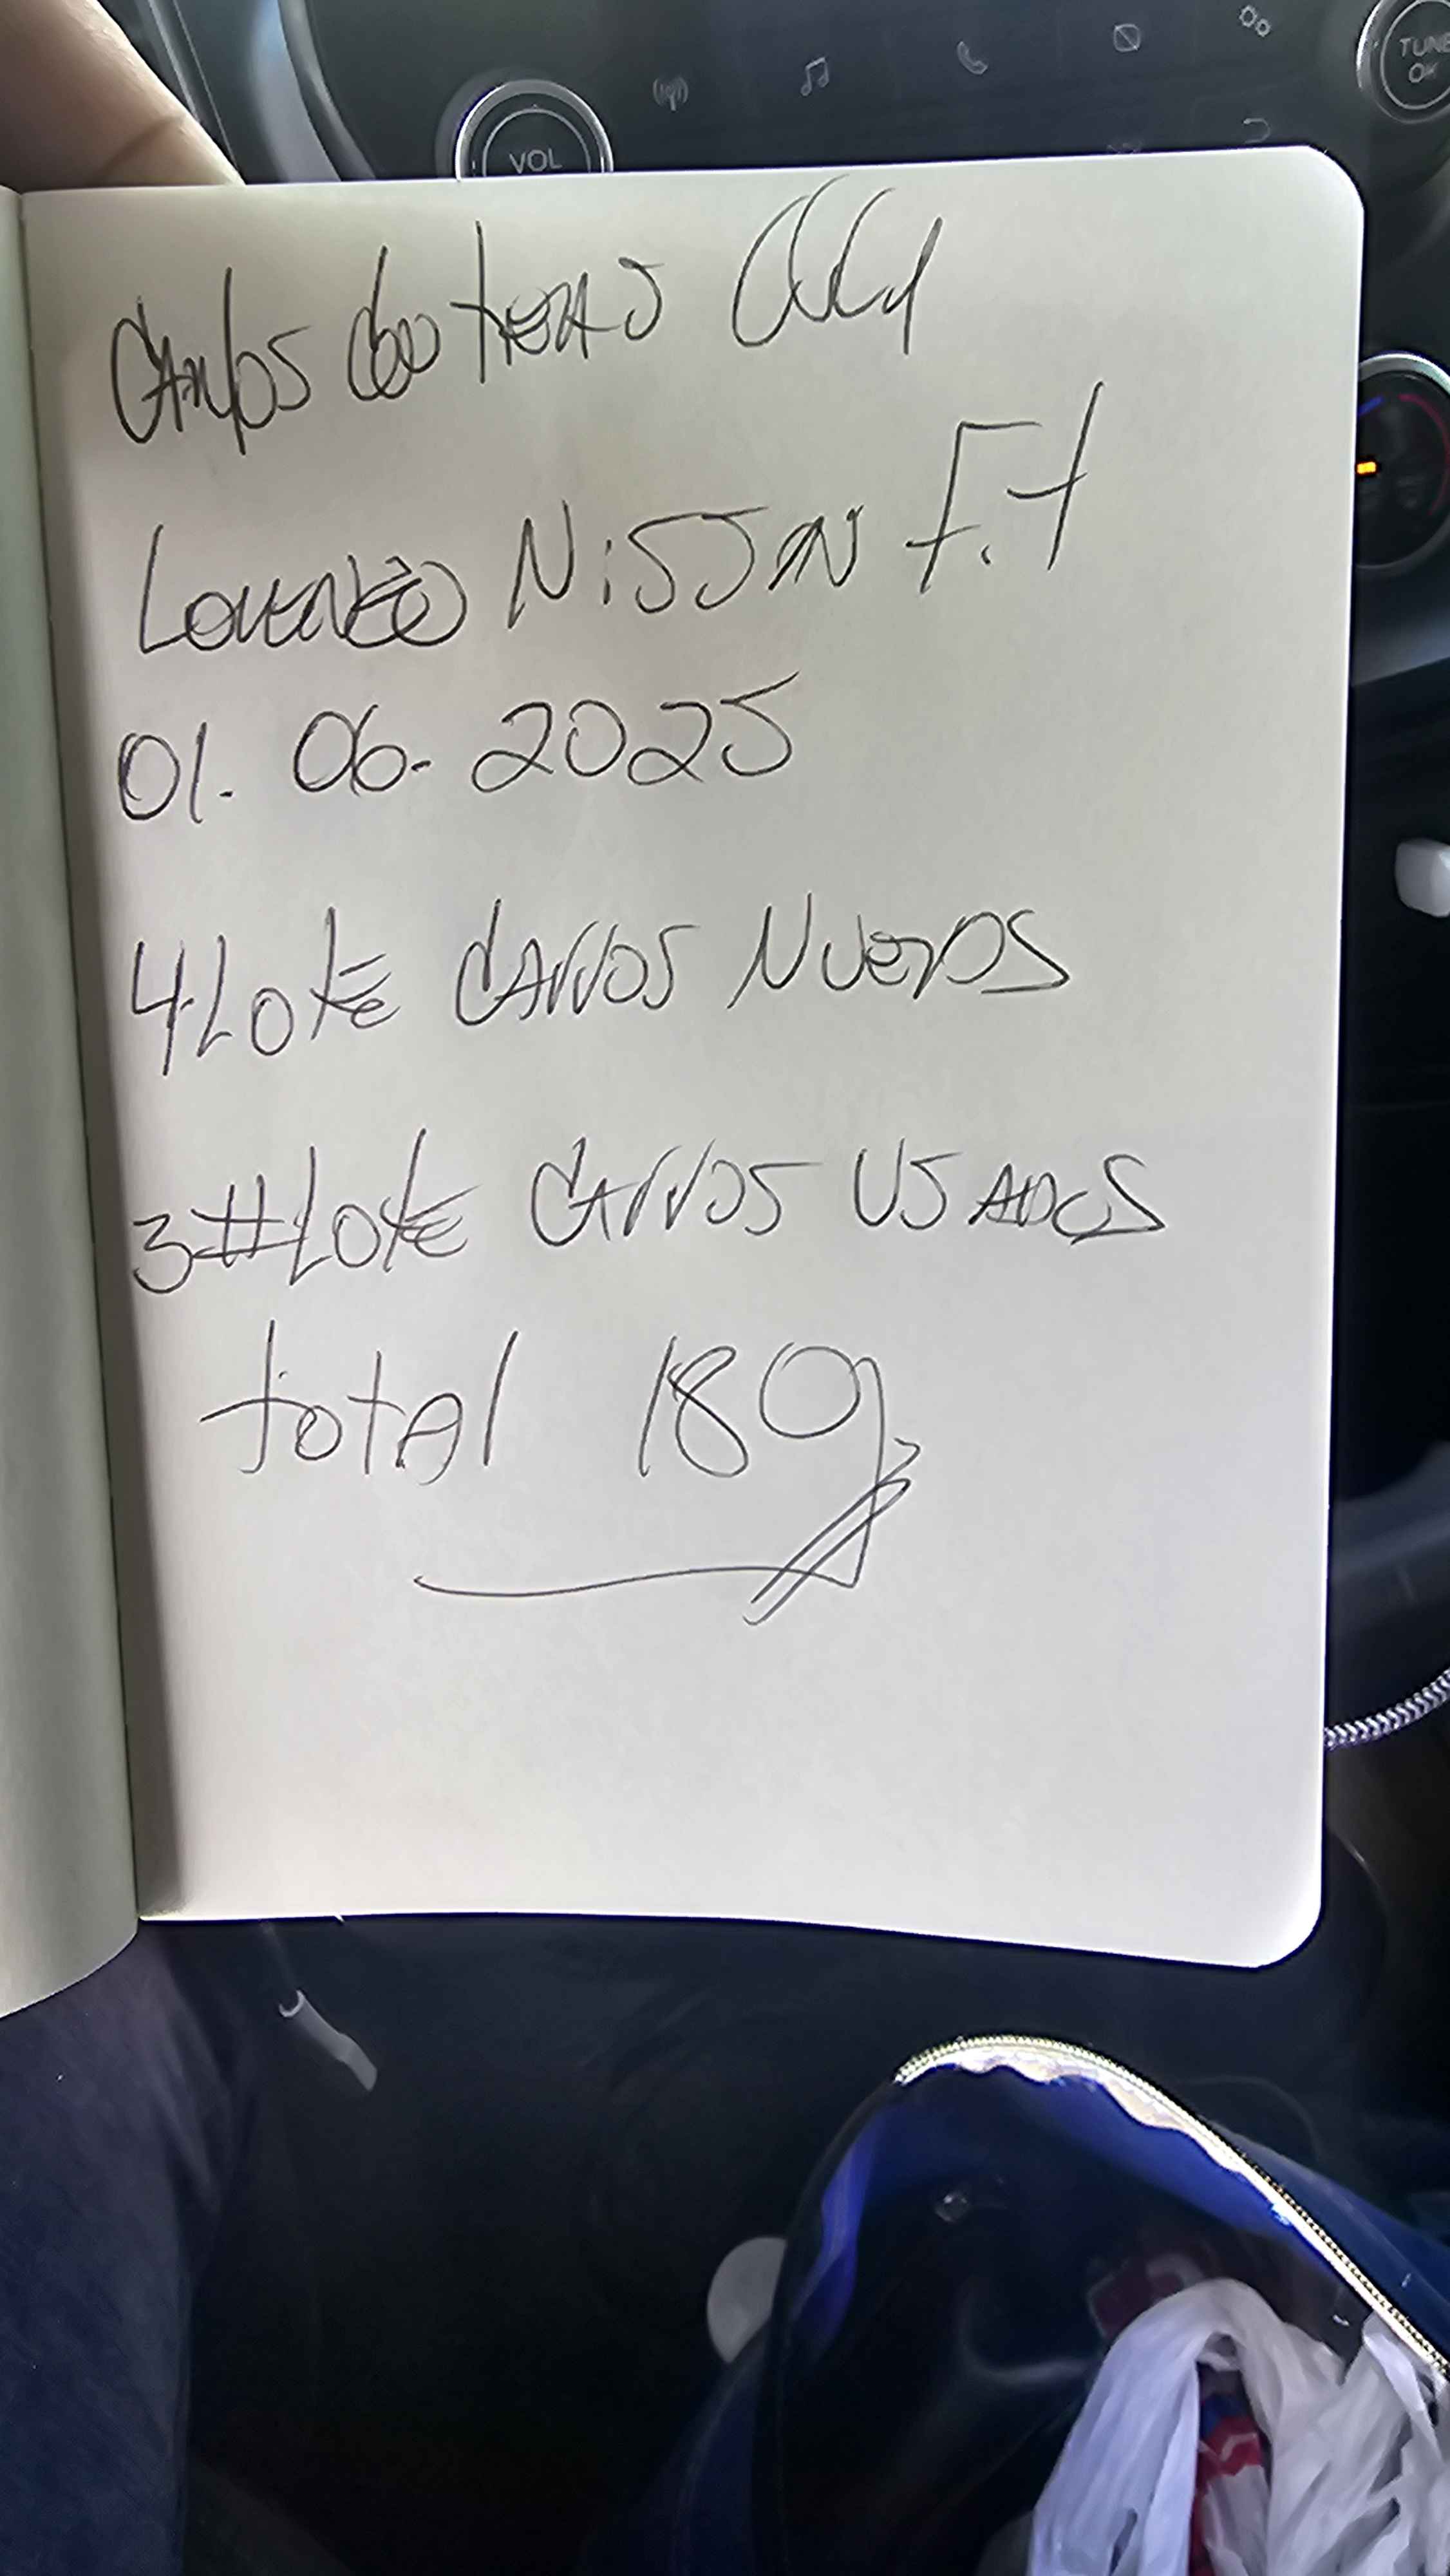 VOL
TUNE
OK
CARlos
Lorenzo Nissan F.t
01. 06. 2025
4 Lote CArros Nuevos
3 # Lote CArros USADOS
total 180